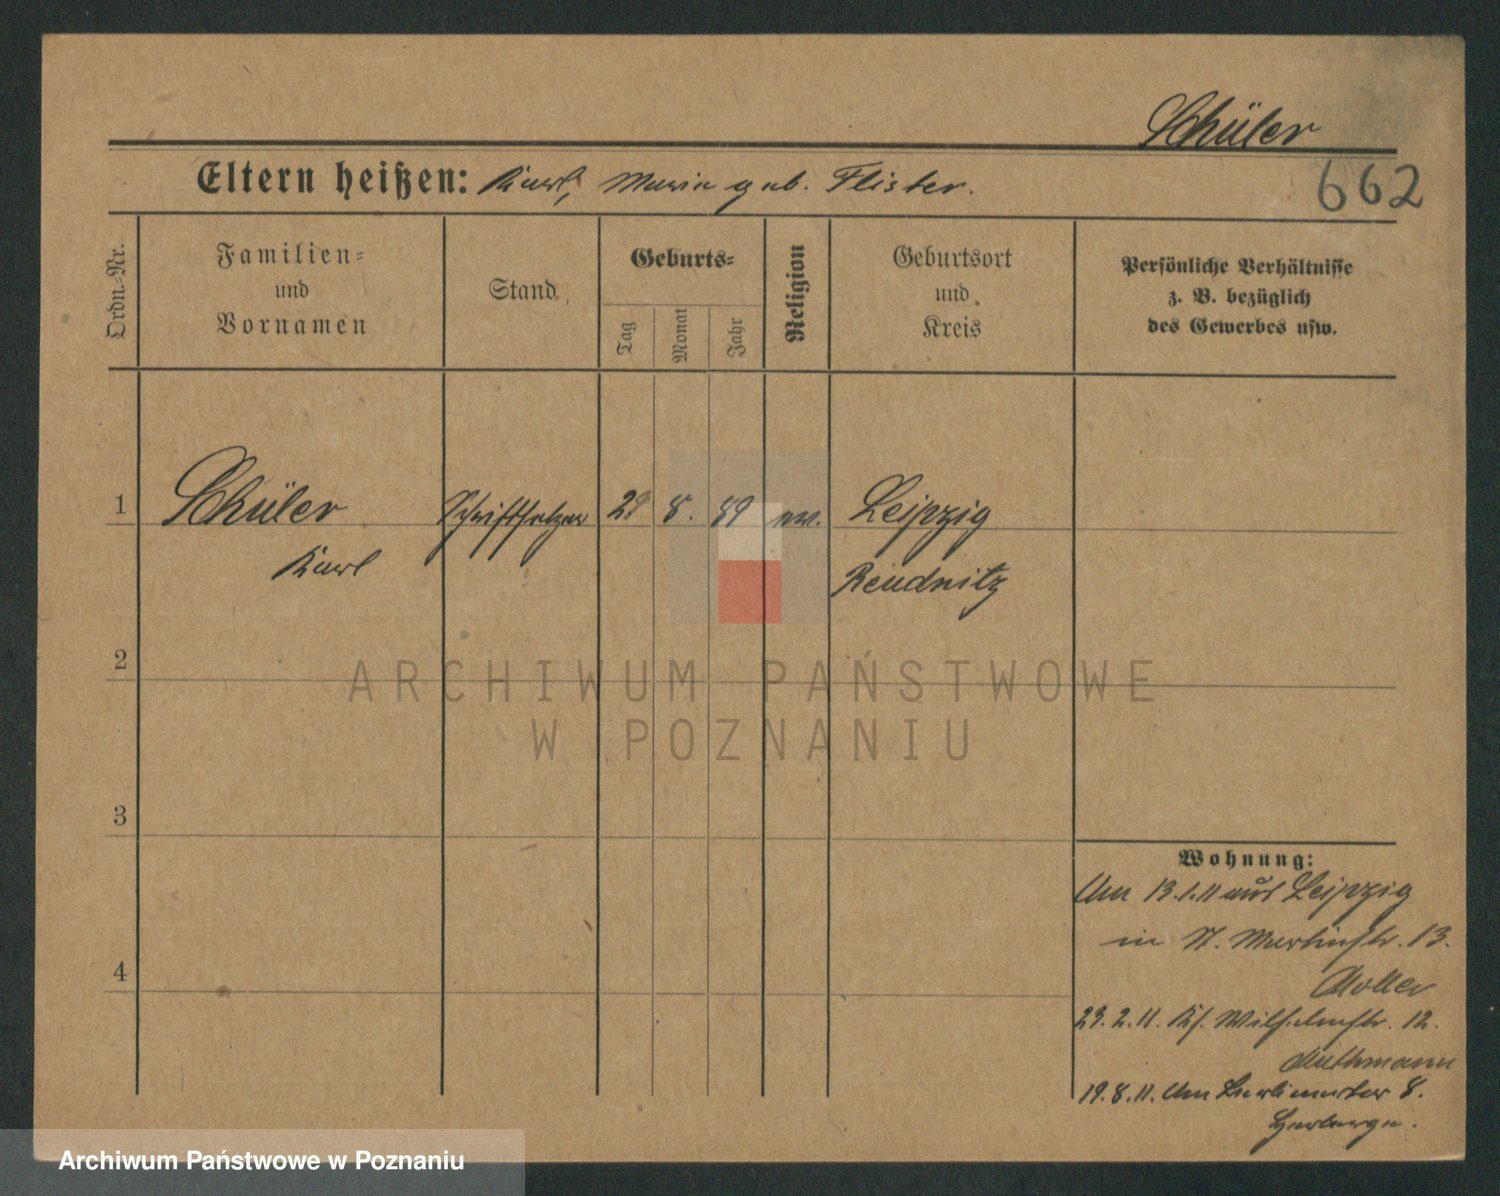 Schüler
662
Eltern heißen: Karl, Maria geb. Flister.
Ordn.-Nr.
Familien- und Vornamen
Stand
Geburts-
Tag
Monat
Jahr
Religion
Geburtsort und Kreis
Persönliche Verhältnisse
z. B. bezüglich
des Gewerbes usw.
1 Schüler Schriftsetzer 28 8. 89 ev. Leipzig
Karl Reudnitz
2
ARCHIWUM PAŃSTWOWE
W POZNANIU
3
4
Wohnung:
Um 13.1.11 aus Leipzig
in St. Martinstr. 13.
29.2.11. Wilhelmstr. 12.
Muthmann
19.8.11. Um Berlinerstor 8.
Herberge.
Archiwum Państwowe w Poznaniu